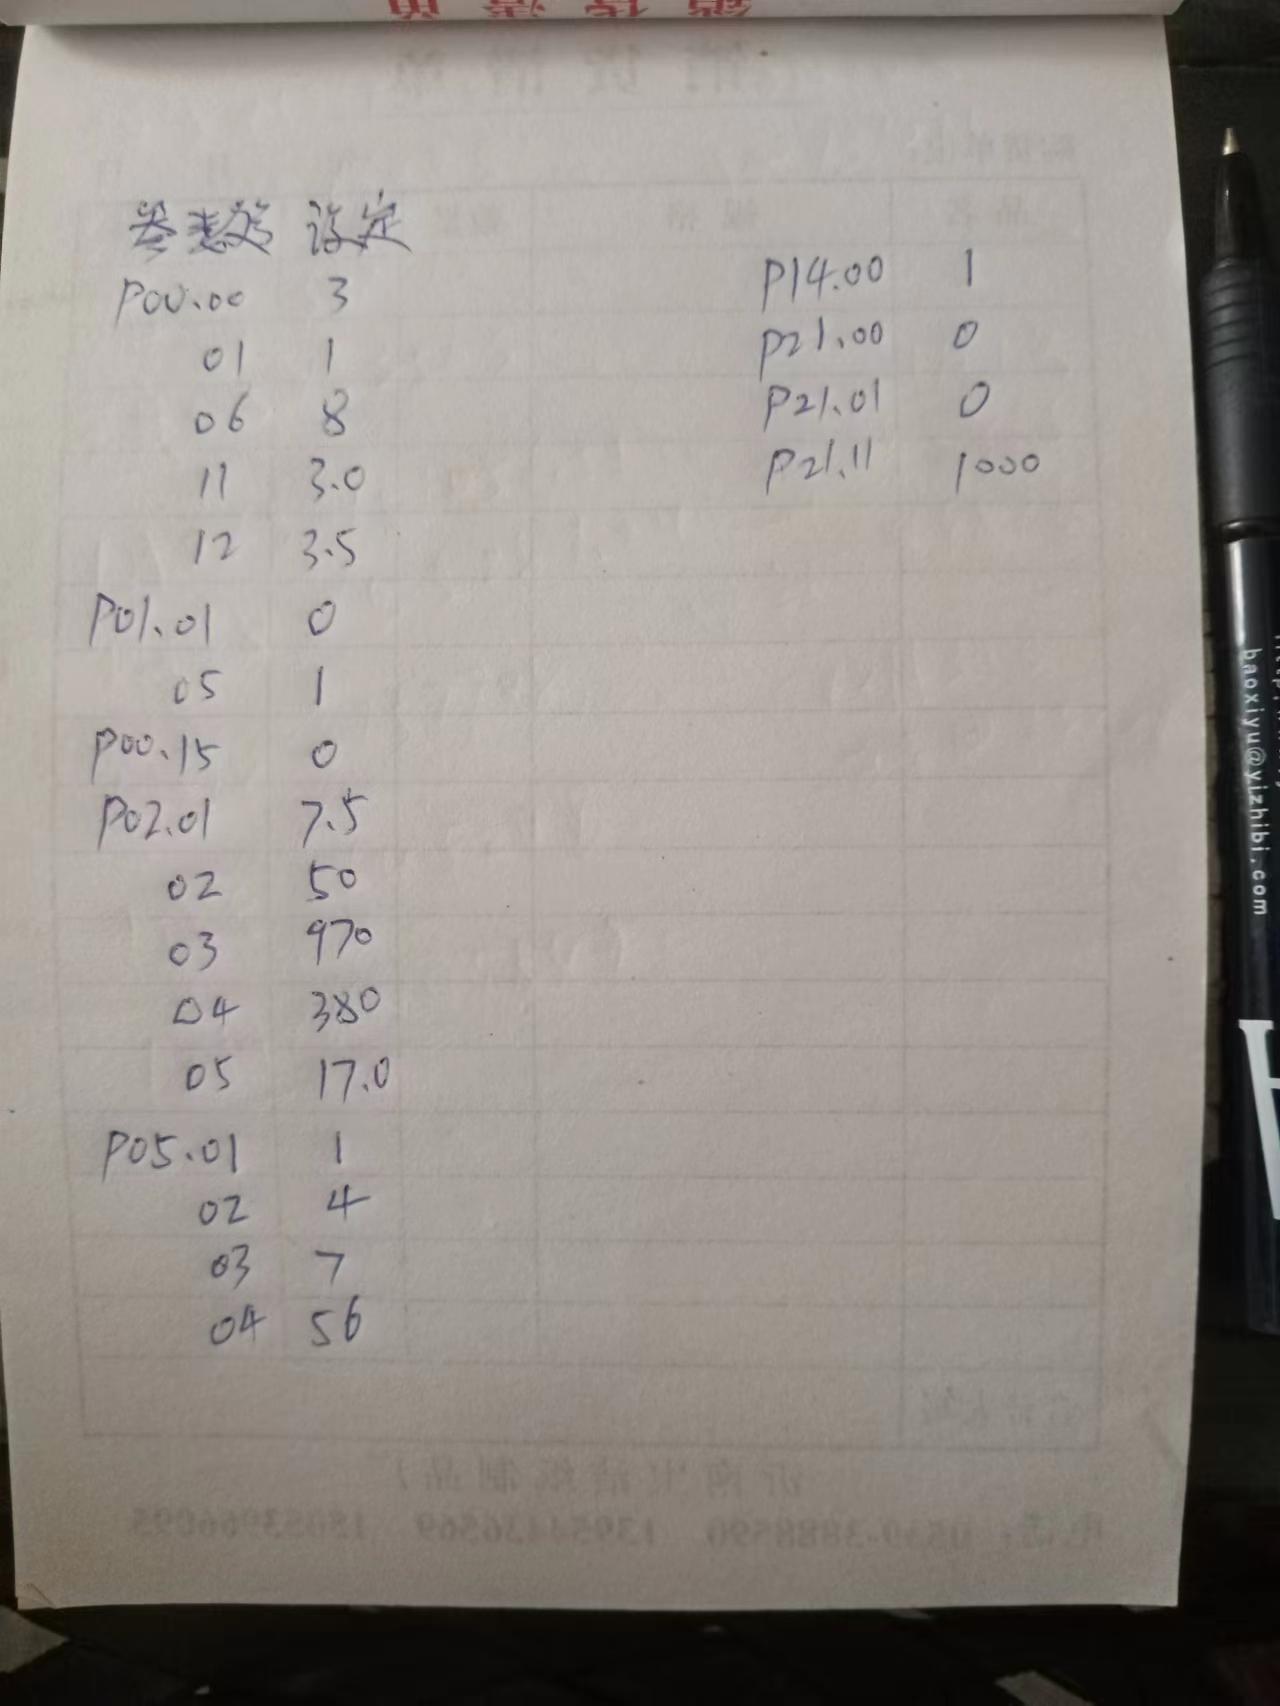 参数 设定
P00.00 3
01 1
06 8
11 3.0
12 3.5
P01.01 0
05 1
P00.15 0
P02.01 7.5
02 50
03 970
04 380
05 17.0
P05.01 1
02 4
03 7
04 56
P14.00 1
P21.00 0
P21.01 0
P21.11 1000
baoxiyu@yizhibi.com